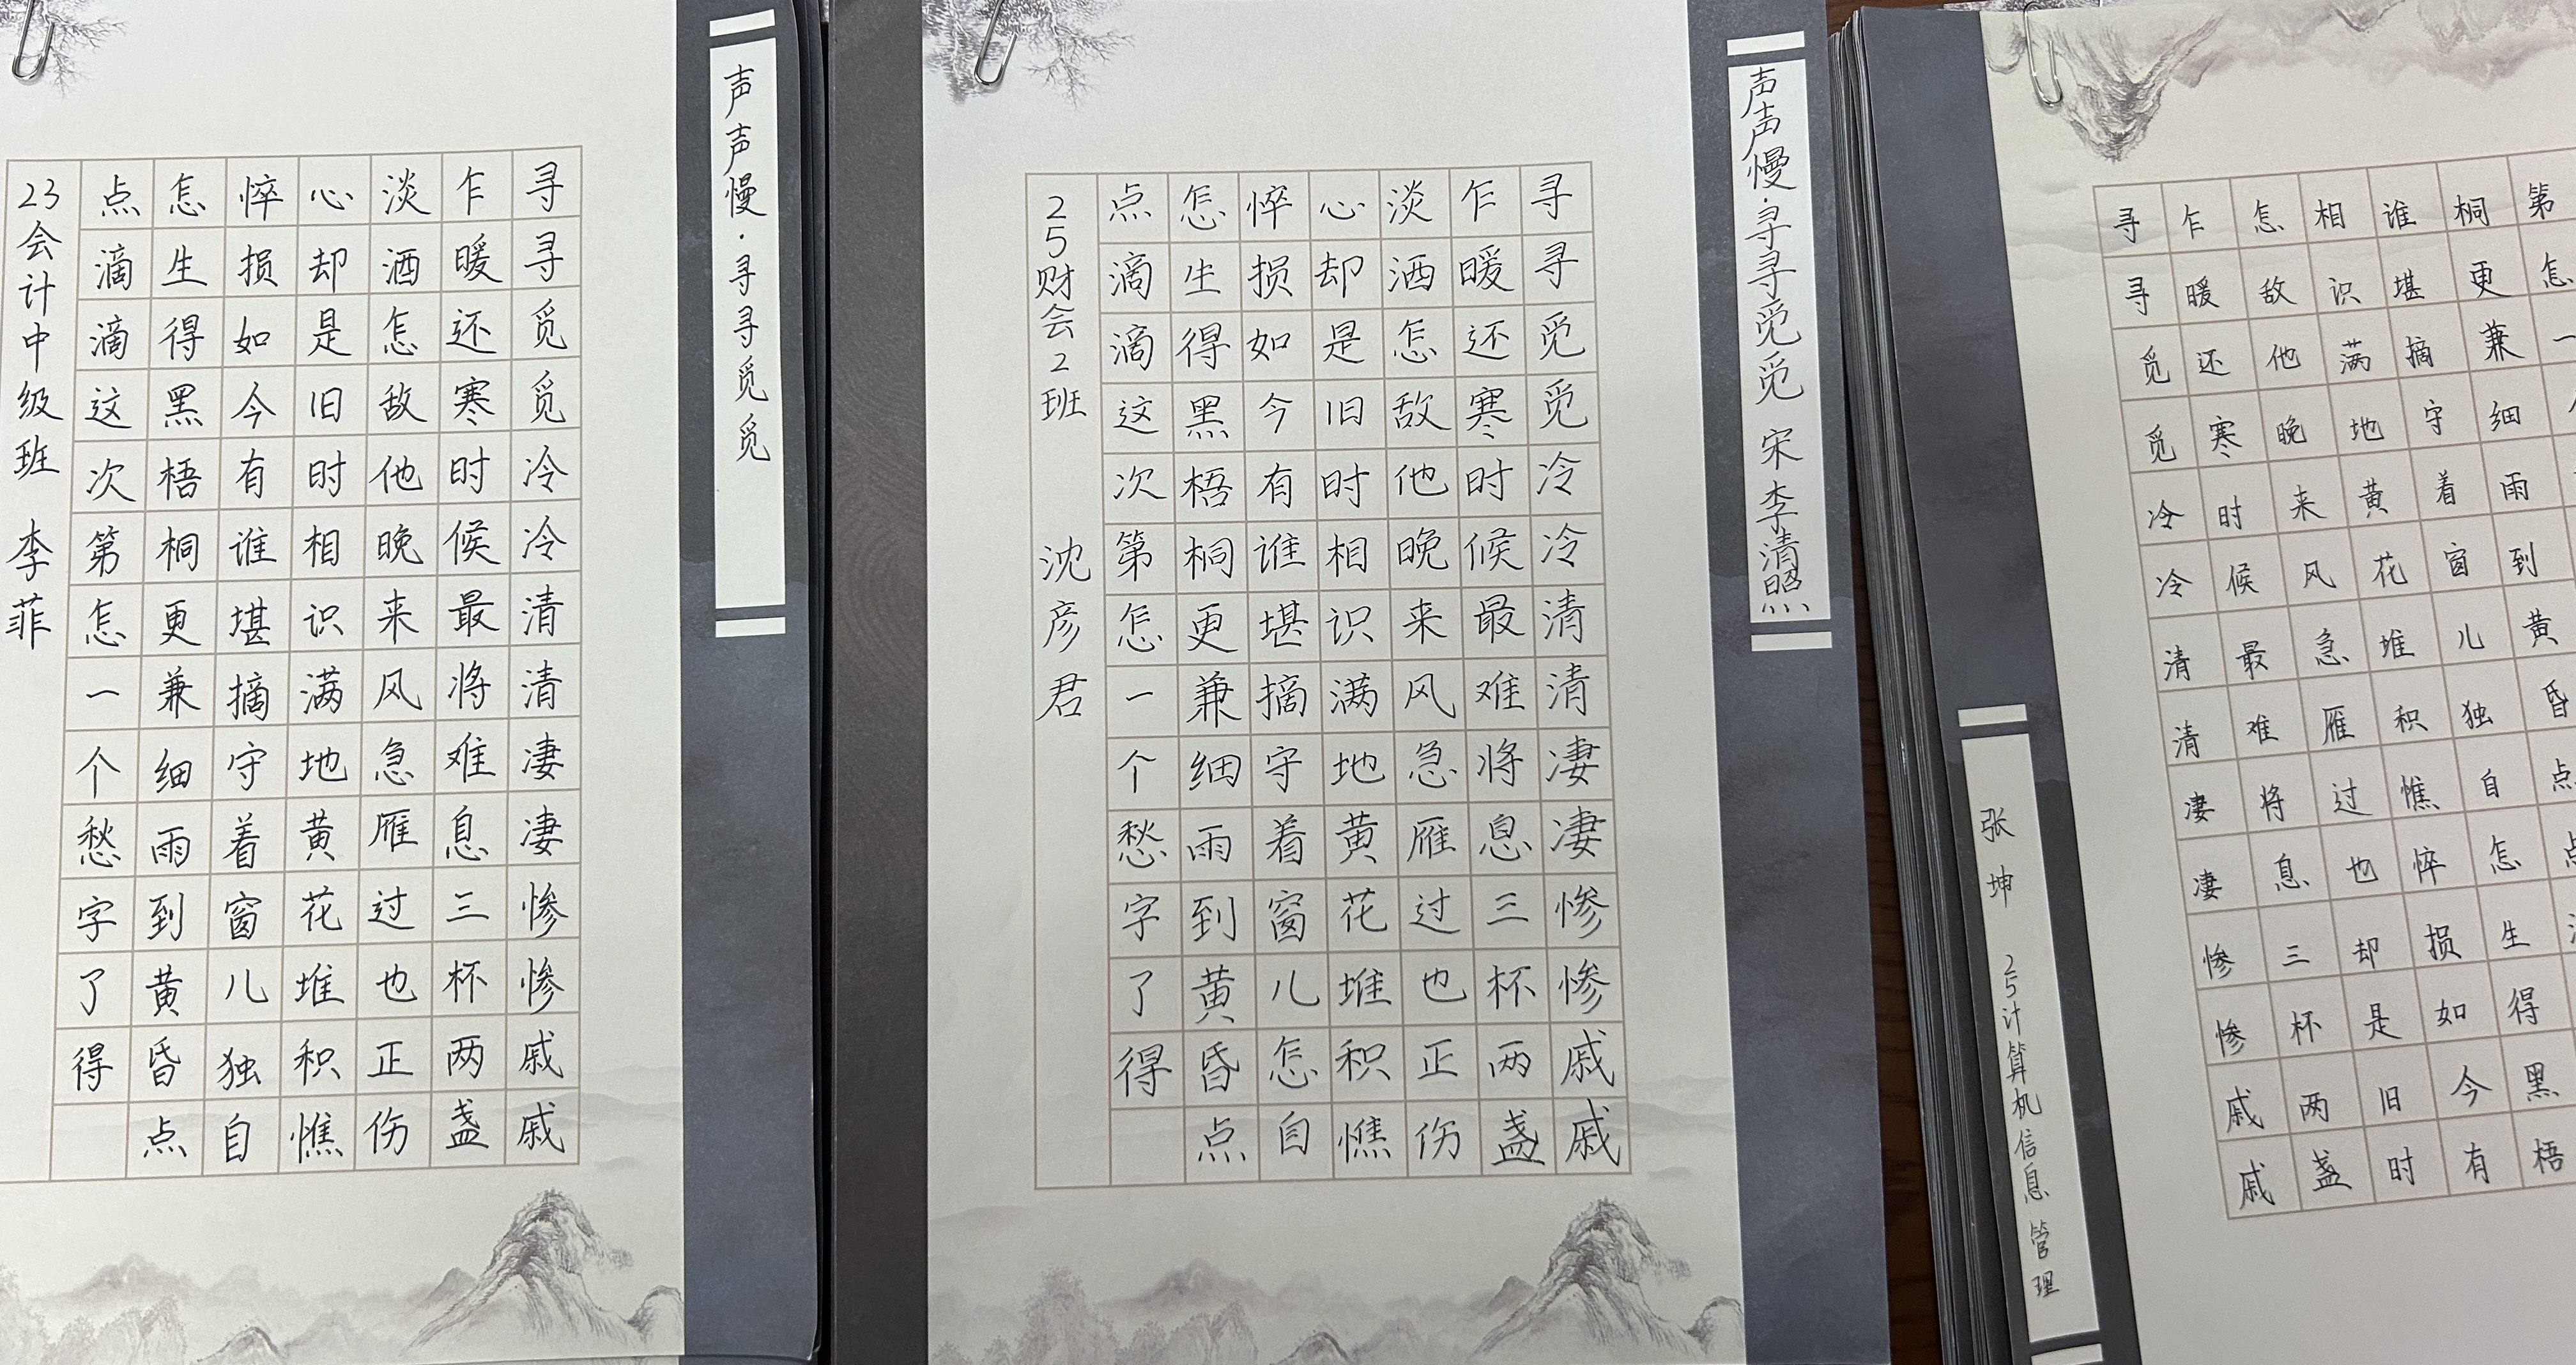 声声慢·寻寻觅觅
寻寻觅觅冷冷清清凄凄惨惨戚戚
乍暖还寒时候最将难息三杯两盏
淡酒怎敌他晚来风急雁过也正伤
心却是旧时相识满地黄花堆积憔
悴损如今有谁堪摘守着窗儿独自
怎生得黑梧桐更兼细雨到黄昏点
点滴滴这次第怎一个愁字了得
23会计中级班 李菲
声声慢·寻寻觅觅 宋 李清照
寻寻觅觅冷冷清清凄凄惨惨戚戚
乍暖还寒时候最难将息三杯两盏
淡酒怎敌他晚来风急雁过也正伤
心却是旧时相识满地黄花堆积憔
悴损如今有谁堪摘守着窗儿怎自
怎生得黑梧桐更兼细雨到黄昏点
点滴滴这次第怎一个愁字了得
25财会2班 沈彦君
张坤 25计算机信息管理
寻寻觅觅冷冷清清凄凄惨惨戚戚
乍暖还寒时候最难将息三杯两盏
怎敌他晚来风急雁过也却是旧时
相识满地黄花堆积憔悴损如今有
谁堪摘守着窗儿独自怎生得黑梧
桐更兼细雨到黄昏点点
第怎一